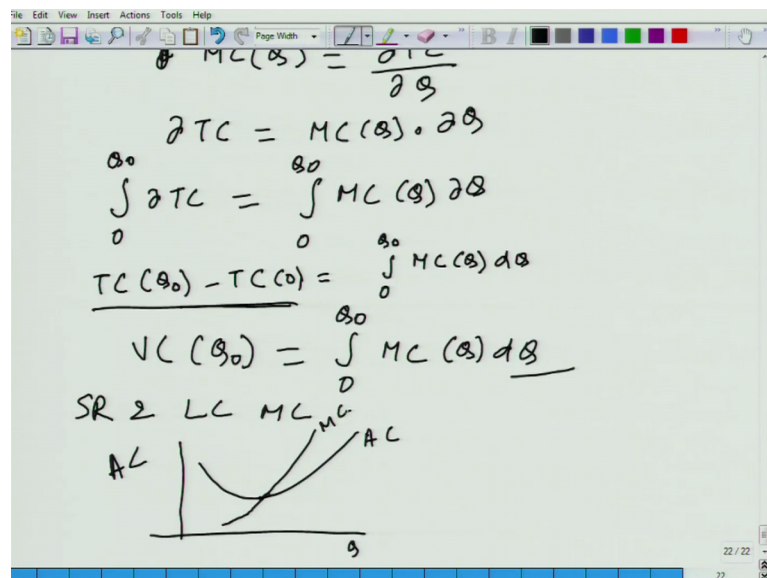 File Edit View Insert Actions Tools Help
Page Width
MC(Q) = ∂TC
∂Q
∂TC = MC(Q) . ∂Q
Q0 Q0
∫ ∂TC = ∫ MC(Q) ∂Q
0 0
TC(Q0) - TC(0) = ∫ MC(Q) dQ
Q0
0
Q0
VC(Q0) = ∫ MC(Q) dQ
0
SR & LC MC
MC
AC
AC
Q
22 / 22
22